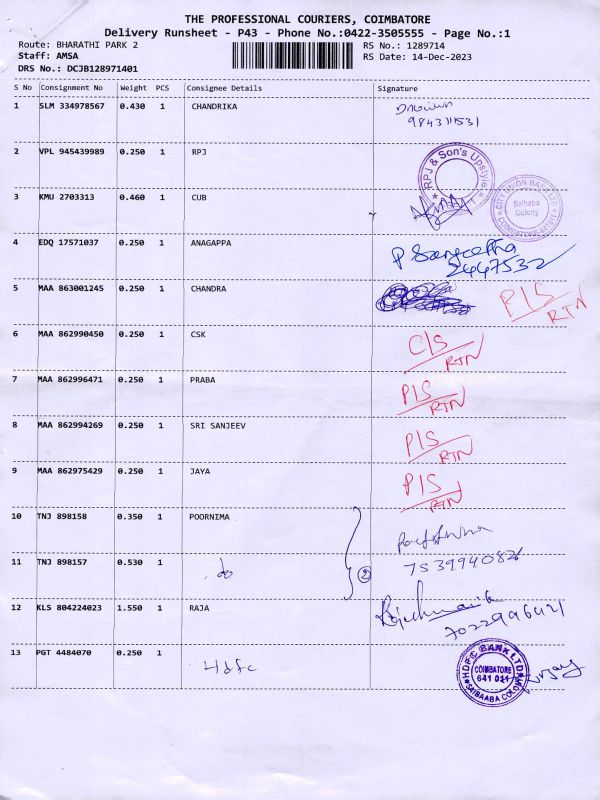 THE PROFESSIONAL COURIERS, COIMBATORE
Delivery Runsheet - P43 - Phone No.:0422-3505555 - Page No.:1
Route: BHARATHI PARK 2 RS No.: 1289714
Staff: AMSA RS Date: 14-Dec-2023
DRS No.: DCJB128971401
S No Consignment No Weight PCS Consignee Details Signature
1 SLM 334978567 0.430 1 CHANDRIKA
2 VPL 945439989 0.250 1 RPJ
RPJ & Son's Upstyle
3 KMU 2703313 0.460 1 CUB
CITY UNION BANK LTD
Saibaba
Colony
4 EDQ 17571037 0.250 1 ANAGAPPA P Sangeetha
2447532
5 MAA 863001245 0.250 1 CHANDRA P/S
RTN
6 MAA 862990450 0.250 1 CSK C/S
RTN
7 MAA 862996471 0.250 1 PRABA P/S
RTN
8 MAA 862994269 0.250 1 SRI SANJEEV P/S
RTN
9 MAA 862975429 0.250 1 JAYA P/S
RTN
10 TNJ 898158 0.350 1 POORNIMA
11 TNJ 898157 0.530 1 do 2 7539940826
12 KLS 804224023 1.550 1 RAJA
7022996421
13 PGT 4484070 0.250 1 Hdfc
HDFC BANK LTD
COIMBATORE
641 011
SAIBAABA COLONY